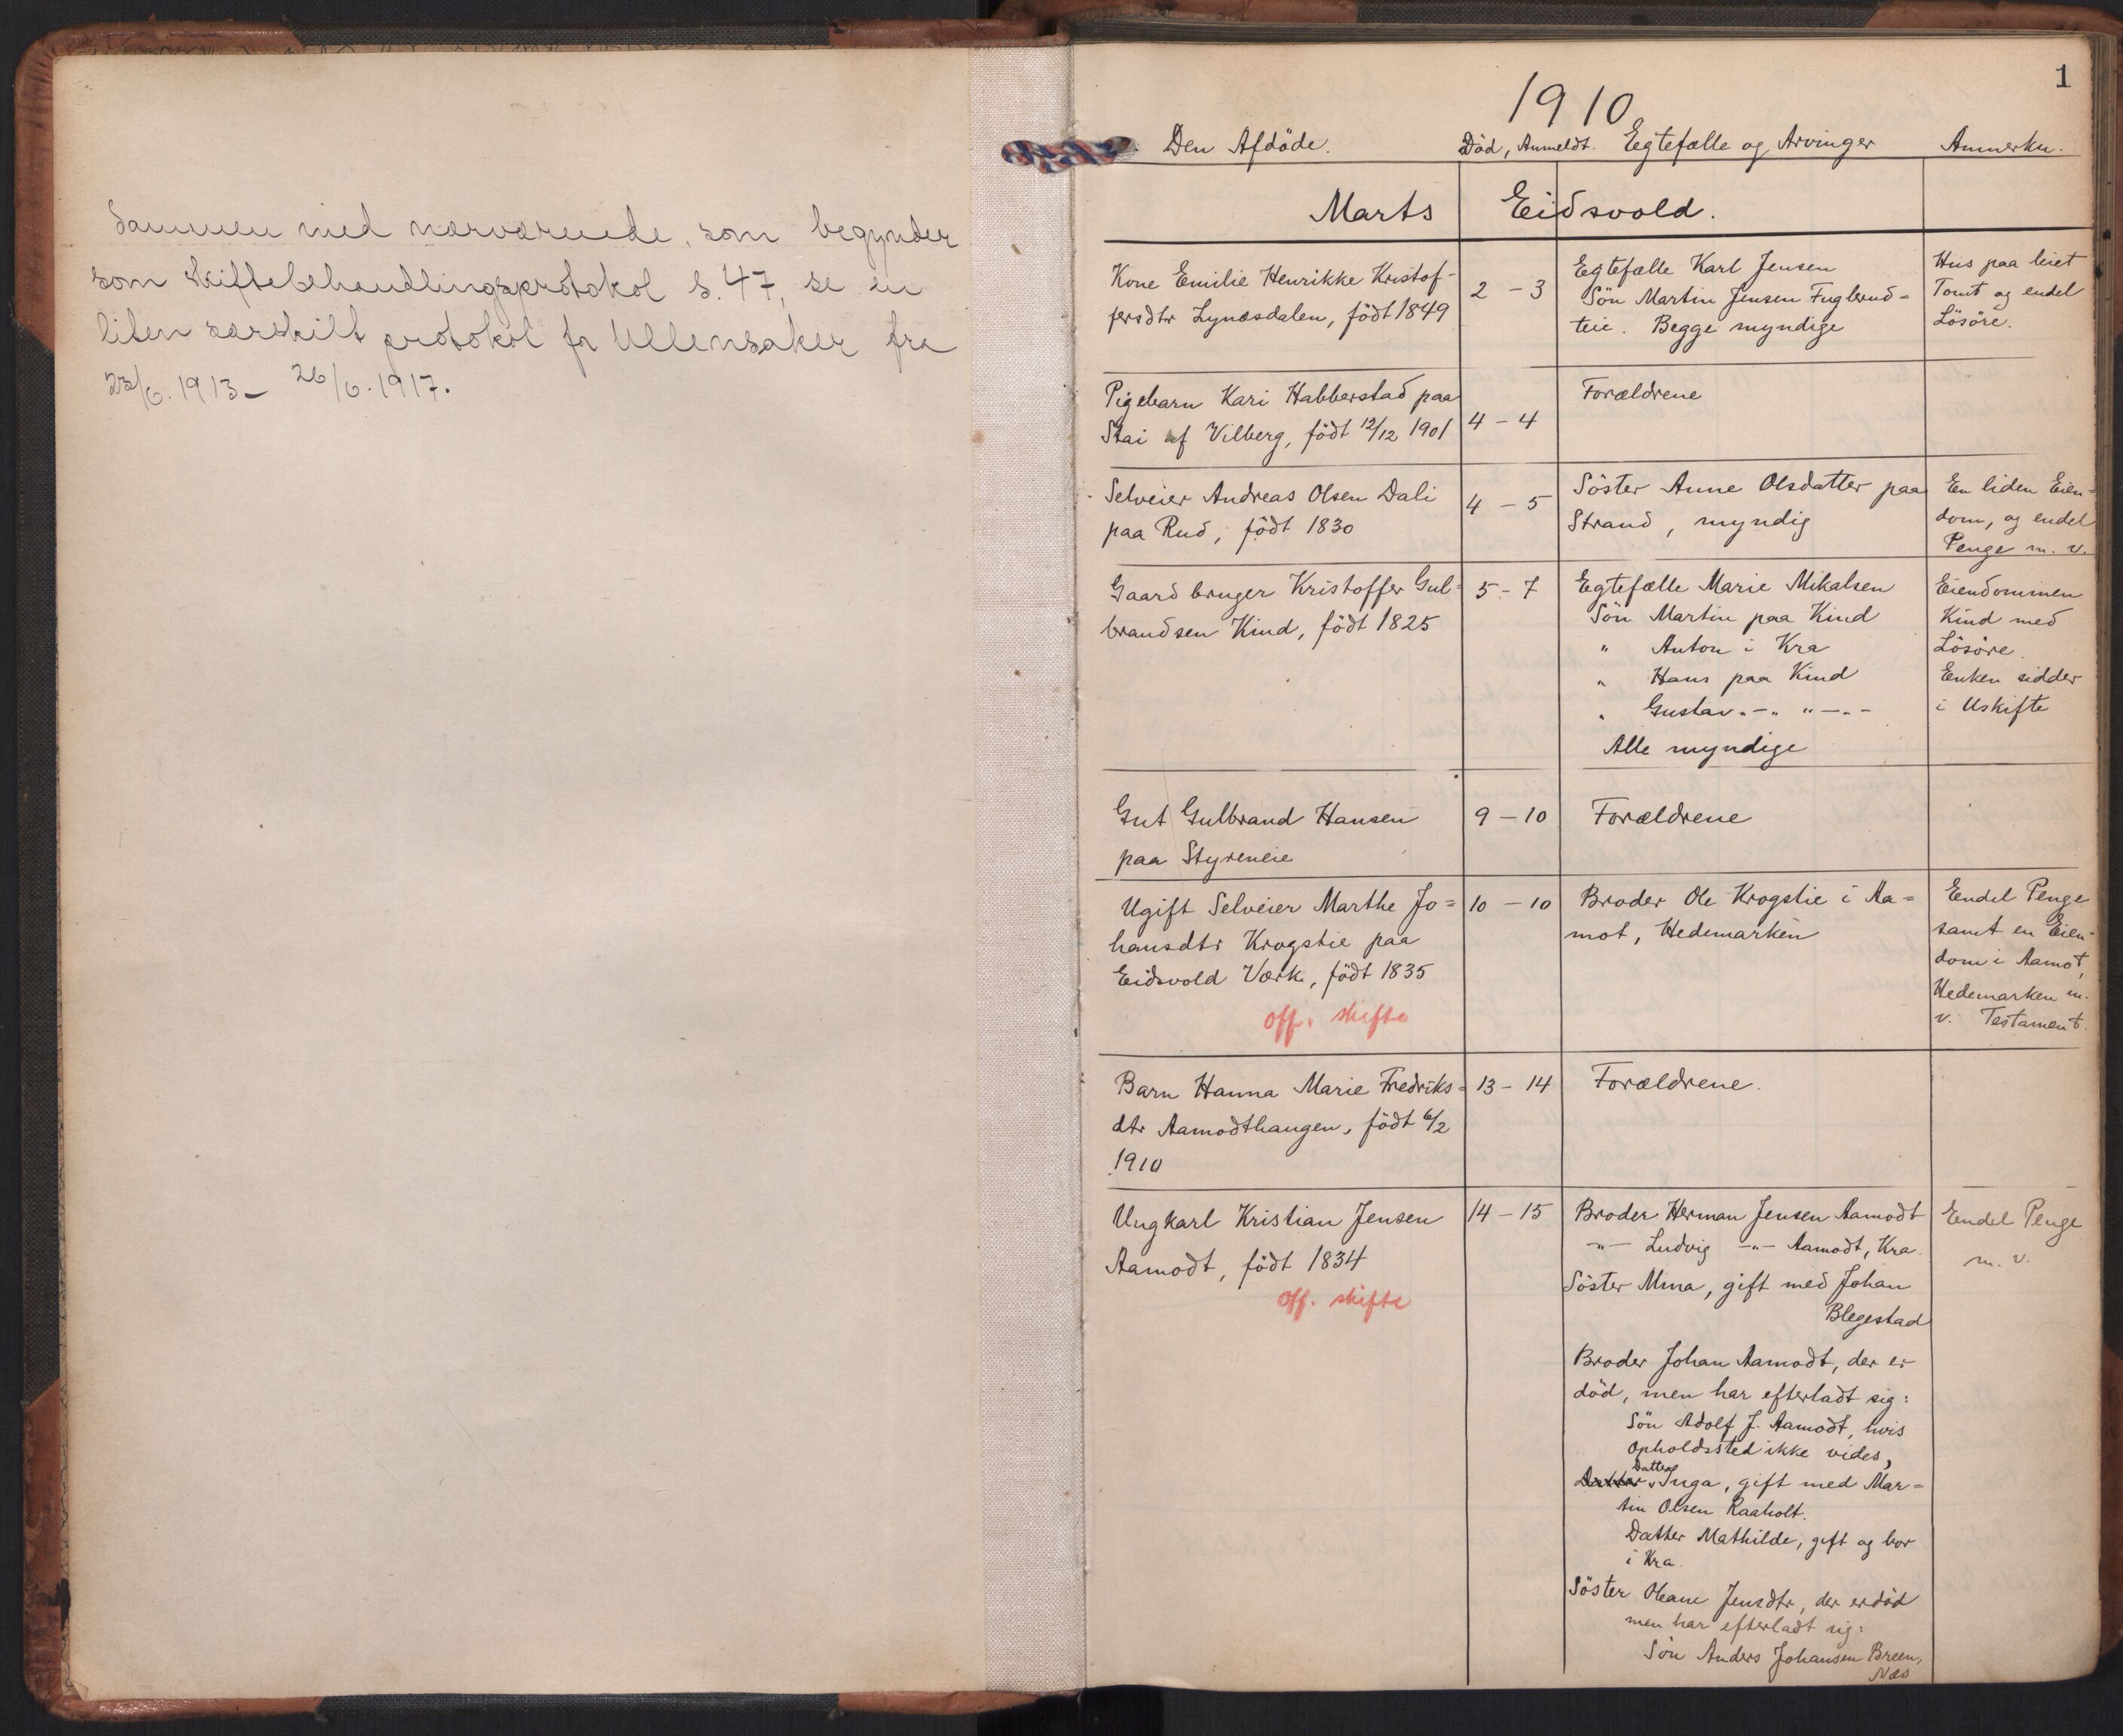 Sammen med nærværende, som begynder
som skiftebehandlingsprotokol s. 47, se en
liten særskilt protokol for Ullensaker fra
23/6. 1913 – 26/6. 1917.
1
1910
Den Afdöde. Död, Anmeldt. Egtefælle og Arvinger Anmerkn.
Marts Eidsvold.
Kone Emilie Henrikke Kristof-
fersdtr Lynæsdalen, född 1849
2 – 3
Egtefælle Karl Jensen
Sön Martin Jensen Fuglerud=
teie. Begge myndige
Hus paa leiet
Tomt og endel
Lösöre.
Pigebarn Kari Habberstad paa
Stai af Vilberg, född 12/12 1901
4 – 4
Forældrene
Selveier Andreas Olsen Dali
paa Rud, född 1830
4 – 5
Söster Anne Olsdatter paa
Strand, myndig
En liden Eien=
dom, og endel
Penge m. v.
Gaardbruger Kristoffer Gul=
brandsen Kind, född 1825
5 – 7
Egtefælle Marie Mikalsen
Sön Martin paa Kind
" Anton i Kra
" Hans paa Kind
" Gustav " – " " – " –
Alle myndige
Eiendommen
Kind med
Lösöre.
Enken sidder
i Uskifte
Gut Gulbrand Hansen
paa Styreneie
9 – 10
Forældrene
Ugift Selveier Marthe Jo=
hansdtr Krogstie paa
Eidsvold Værk, född 1835
off. skifte
10 – 10
Broder Ole Krogstie i Aa=
mot, Hedemarken
Endel Penge
samt en Eien=
dom i Aamot,
Hedemarken m.
v. Testament.
Barn Hanna Marie Fredriks=
dtr Aamodthaugen, född 6/2
1910
13 – 14
Forældrene.
Ungkarl Kristian Jensen
Aamodt, född 1834
off. skifte
14 – 15
Broder Herman Jensen Aamodt
–"– Ludvig –"– Aamodt, Kra.
Söster Mina, gift med Johan
Blegestad
Broder Johan Aamodt, der er
död, men har efterladt sig:
Sön Adolf J. Aamodt, hvis
Opholdssted ikke vides,
Datter
Datter Inga, gift med Mar=
tin Olsen Raaholt.
Datter Mathilde, gift og bor
i Kra.
Söster Oleane Jensdtr, der er död
men har efterladt sig:
Sön Anders Johansen Breen,
Næs
Endel Penge
m. v.